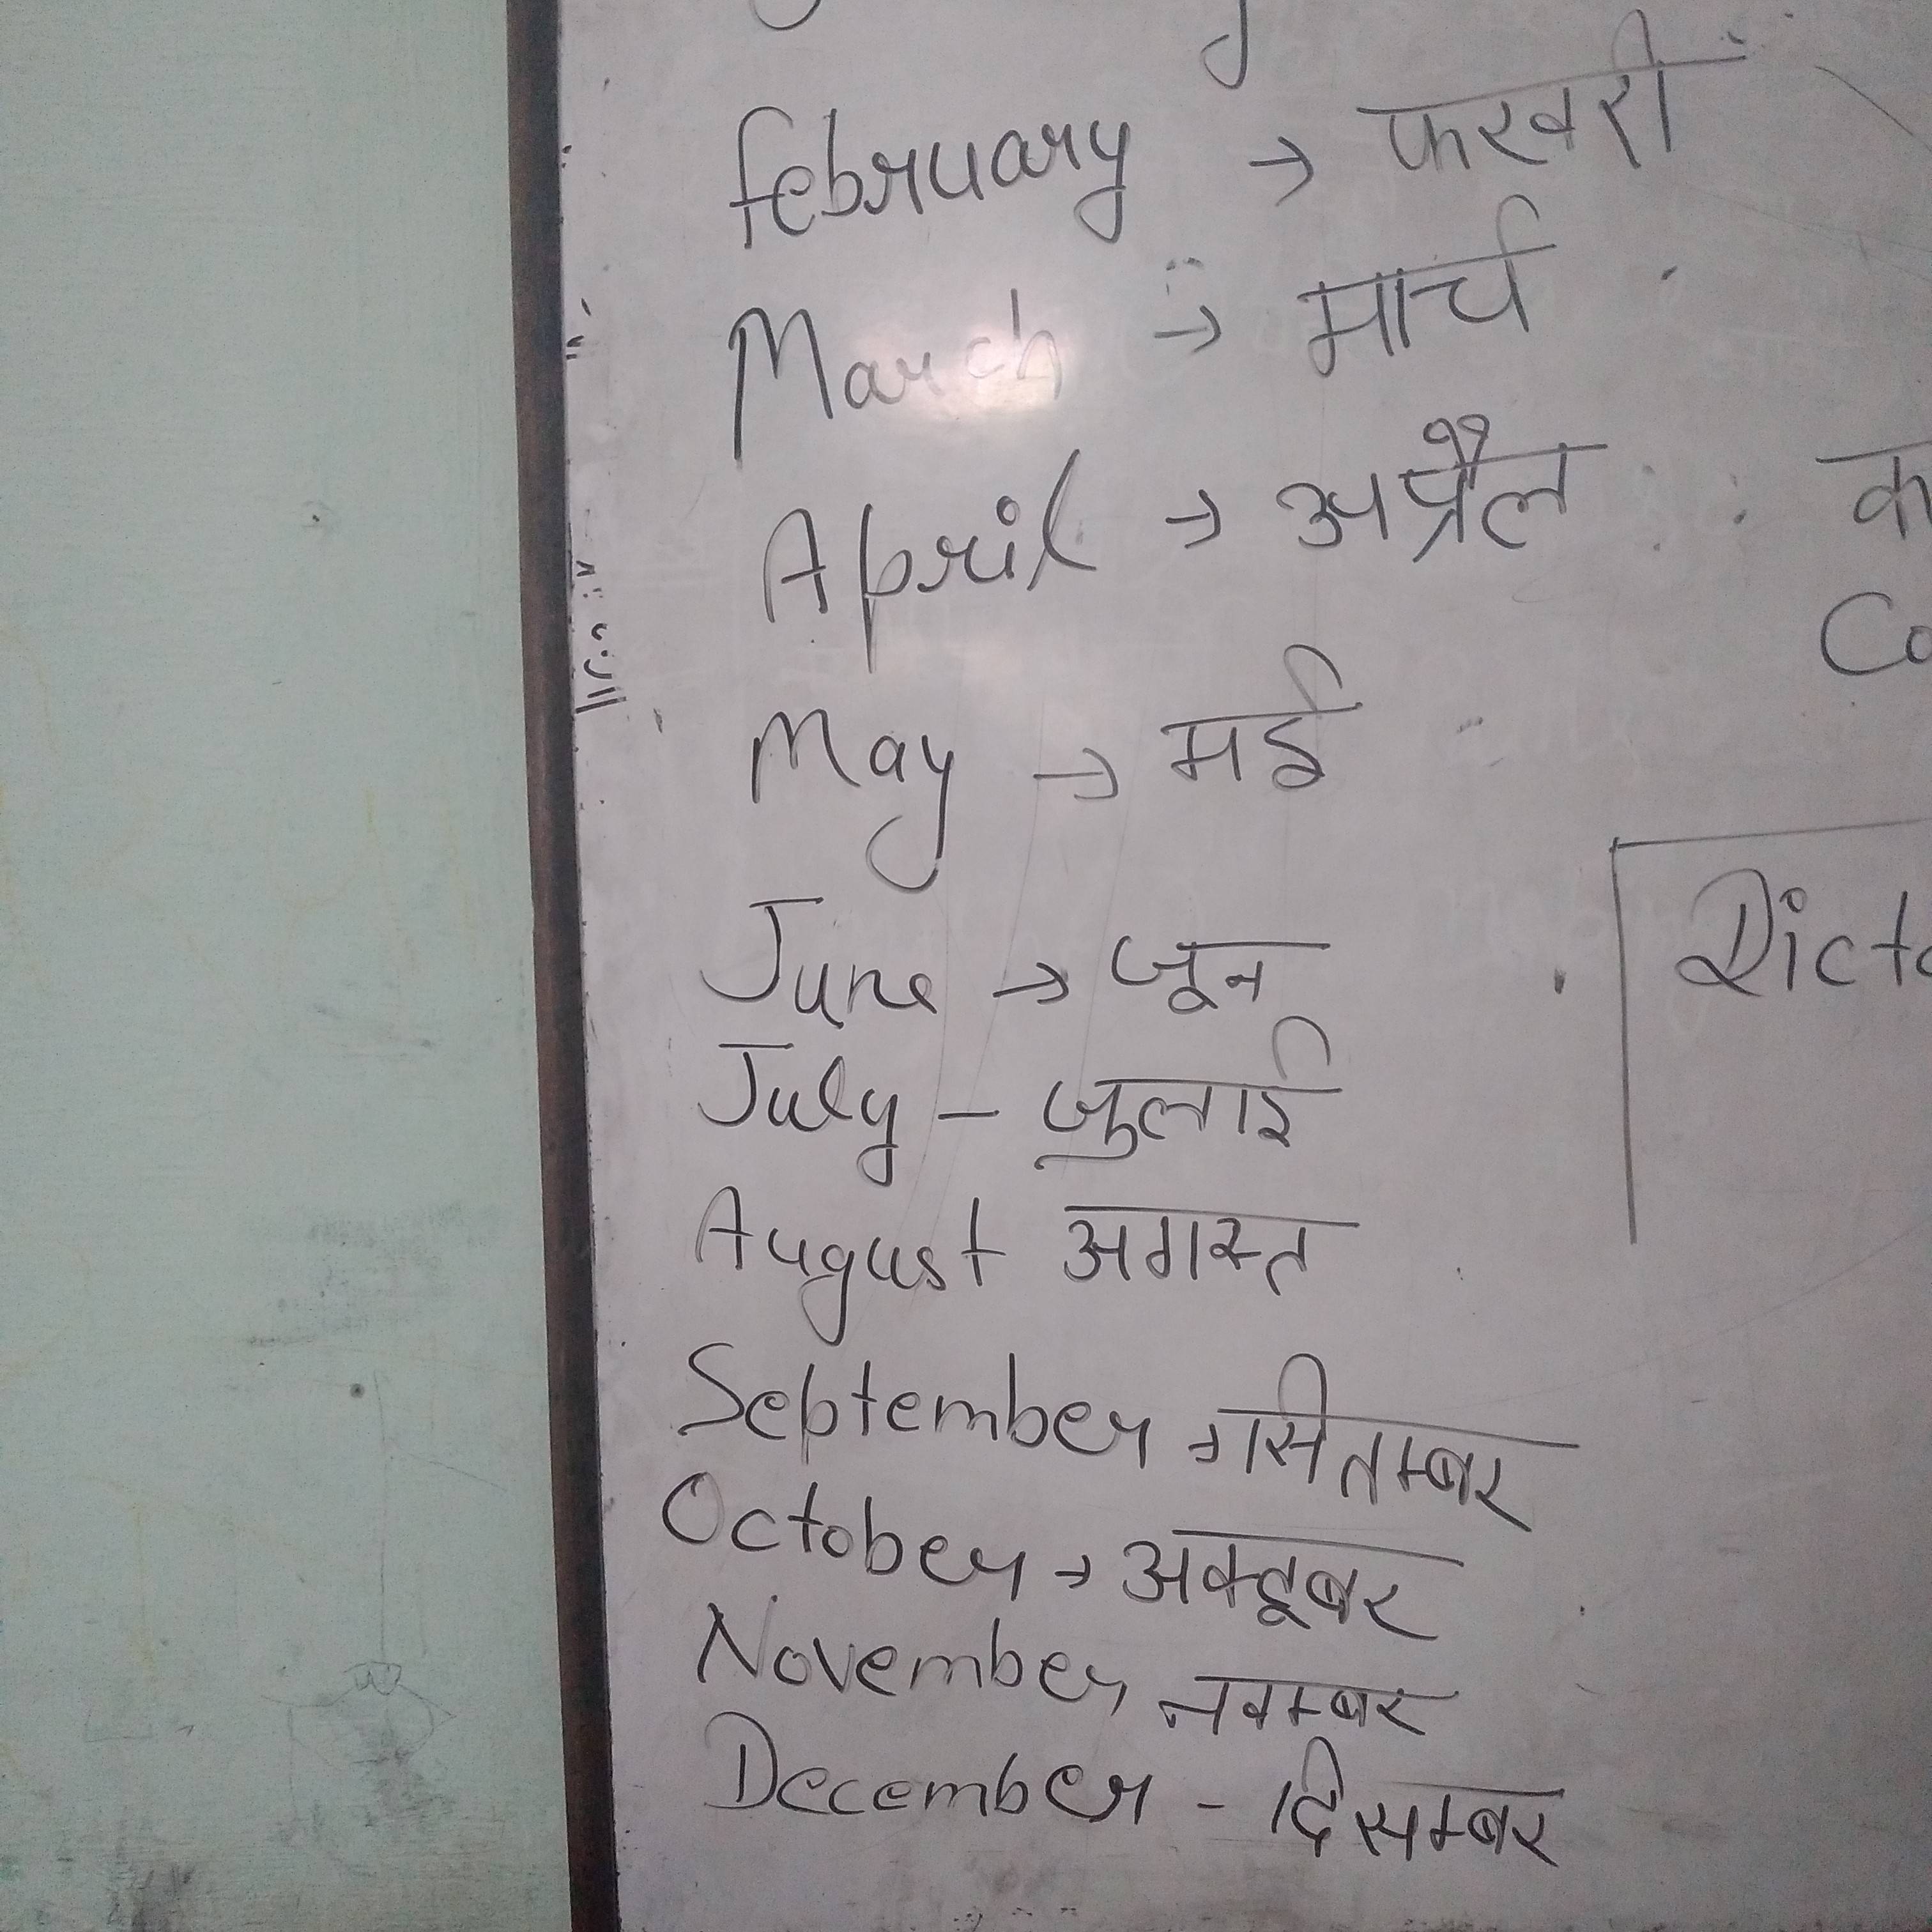 February → फरवरी
March → मार्च
April → अप्रैल
May → मई
June → जून
July – जुलाई
August अगस्त
September → सितम्बर
October → अक्टूबर
November नवम्बर
December - दिसम्बर